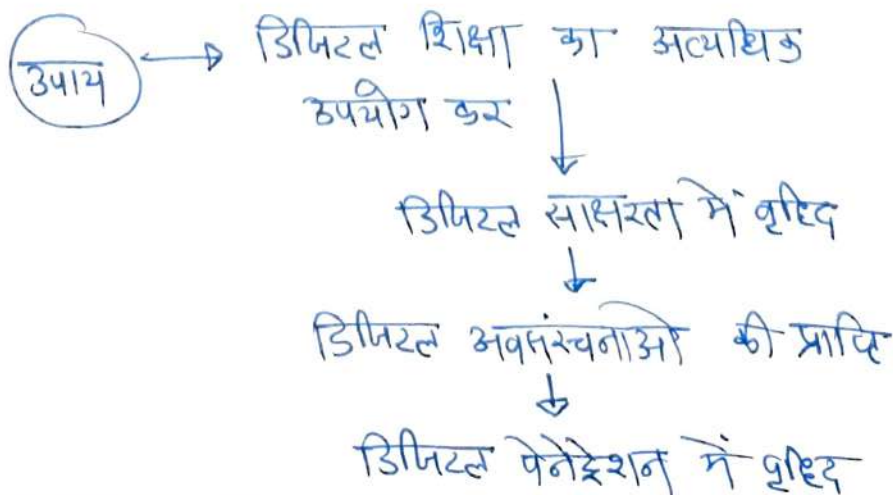 उपाय
डिजिटल शिक्षा का अत्यधिक
उपयोग कर
डिजिटल साक्षरता में वृद्धि
डिजिटल अवसंरचनाओ की प्राप्ति
डिजिटल पेनेट्रेशन में वृद्धि